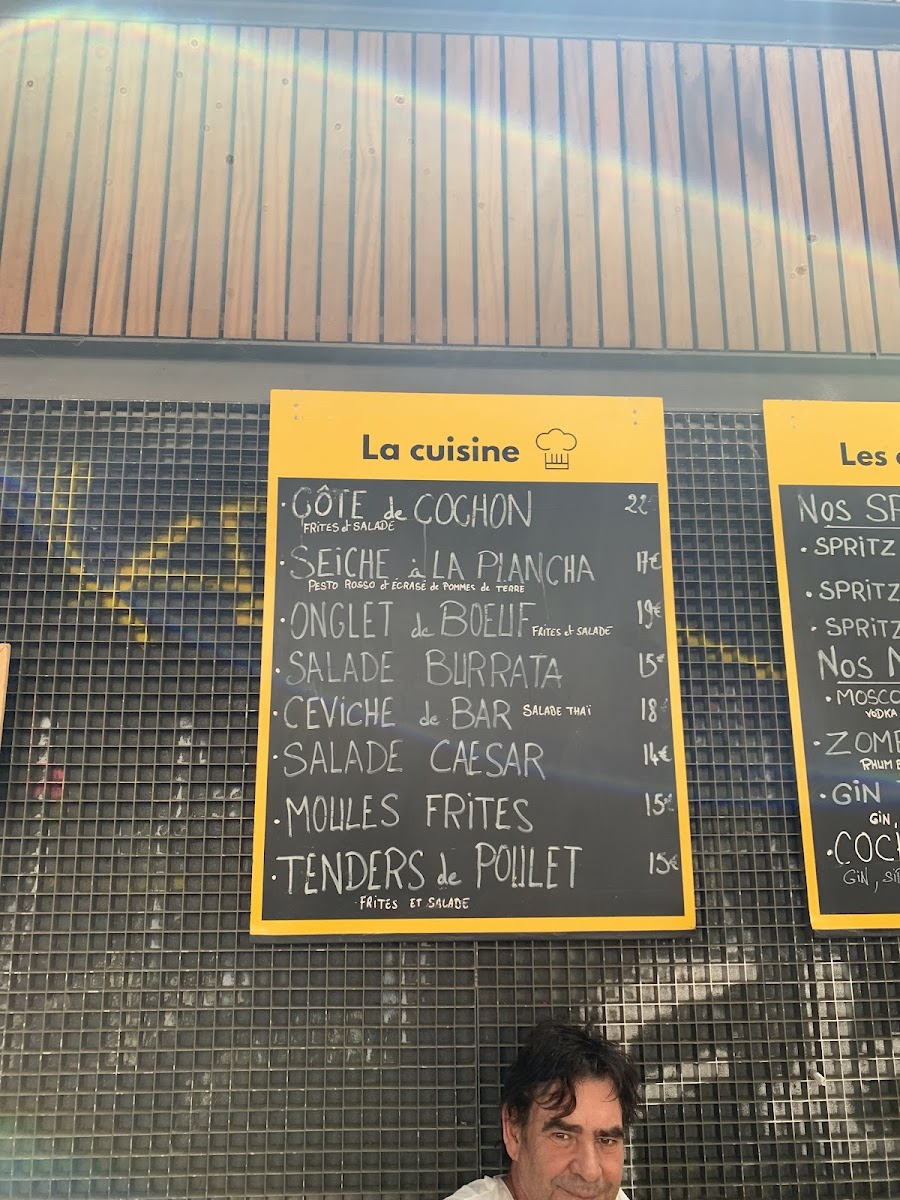 La cuisine
· CÔTE de COCHON 22
FRITES et SALADE
· SEICHE à LA PLANCHA 17€
PESTO ROSSO et ECRASÉ de POMMES de TERRE
· ONGLET de BOEUF FRITES et SALADE 19€
· SALADE BURRATA 15€
· CEVICHE de BAR SALADE THAÏ 18€
· SALADE CAESAR 14€
· MOULES FRITES 15€
· TENDERS de POULET 15€
· FRITES ET SALADE
Les
NOS SP
· SPRITZ
· SPRITZ
· SPRITZ
NOS
· MOSCO
VODKA
· ZOMB
RHUM
· GIN
GIN,
· COC
GIN, SI